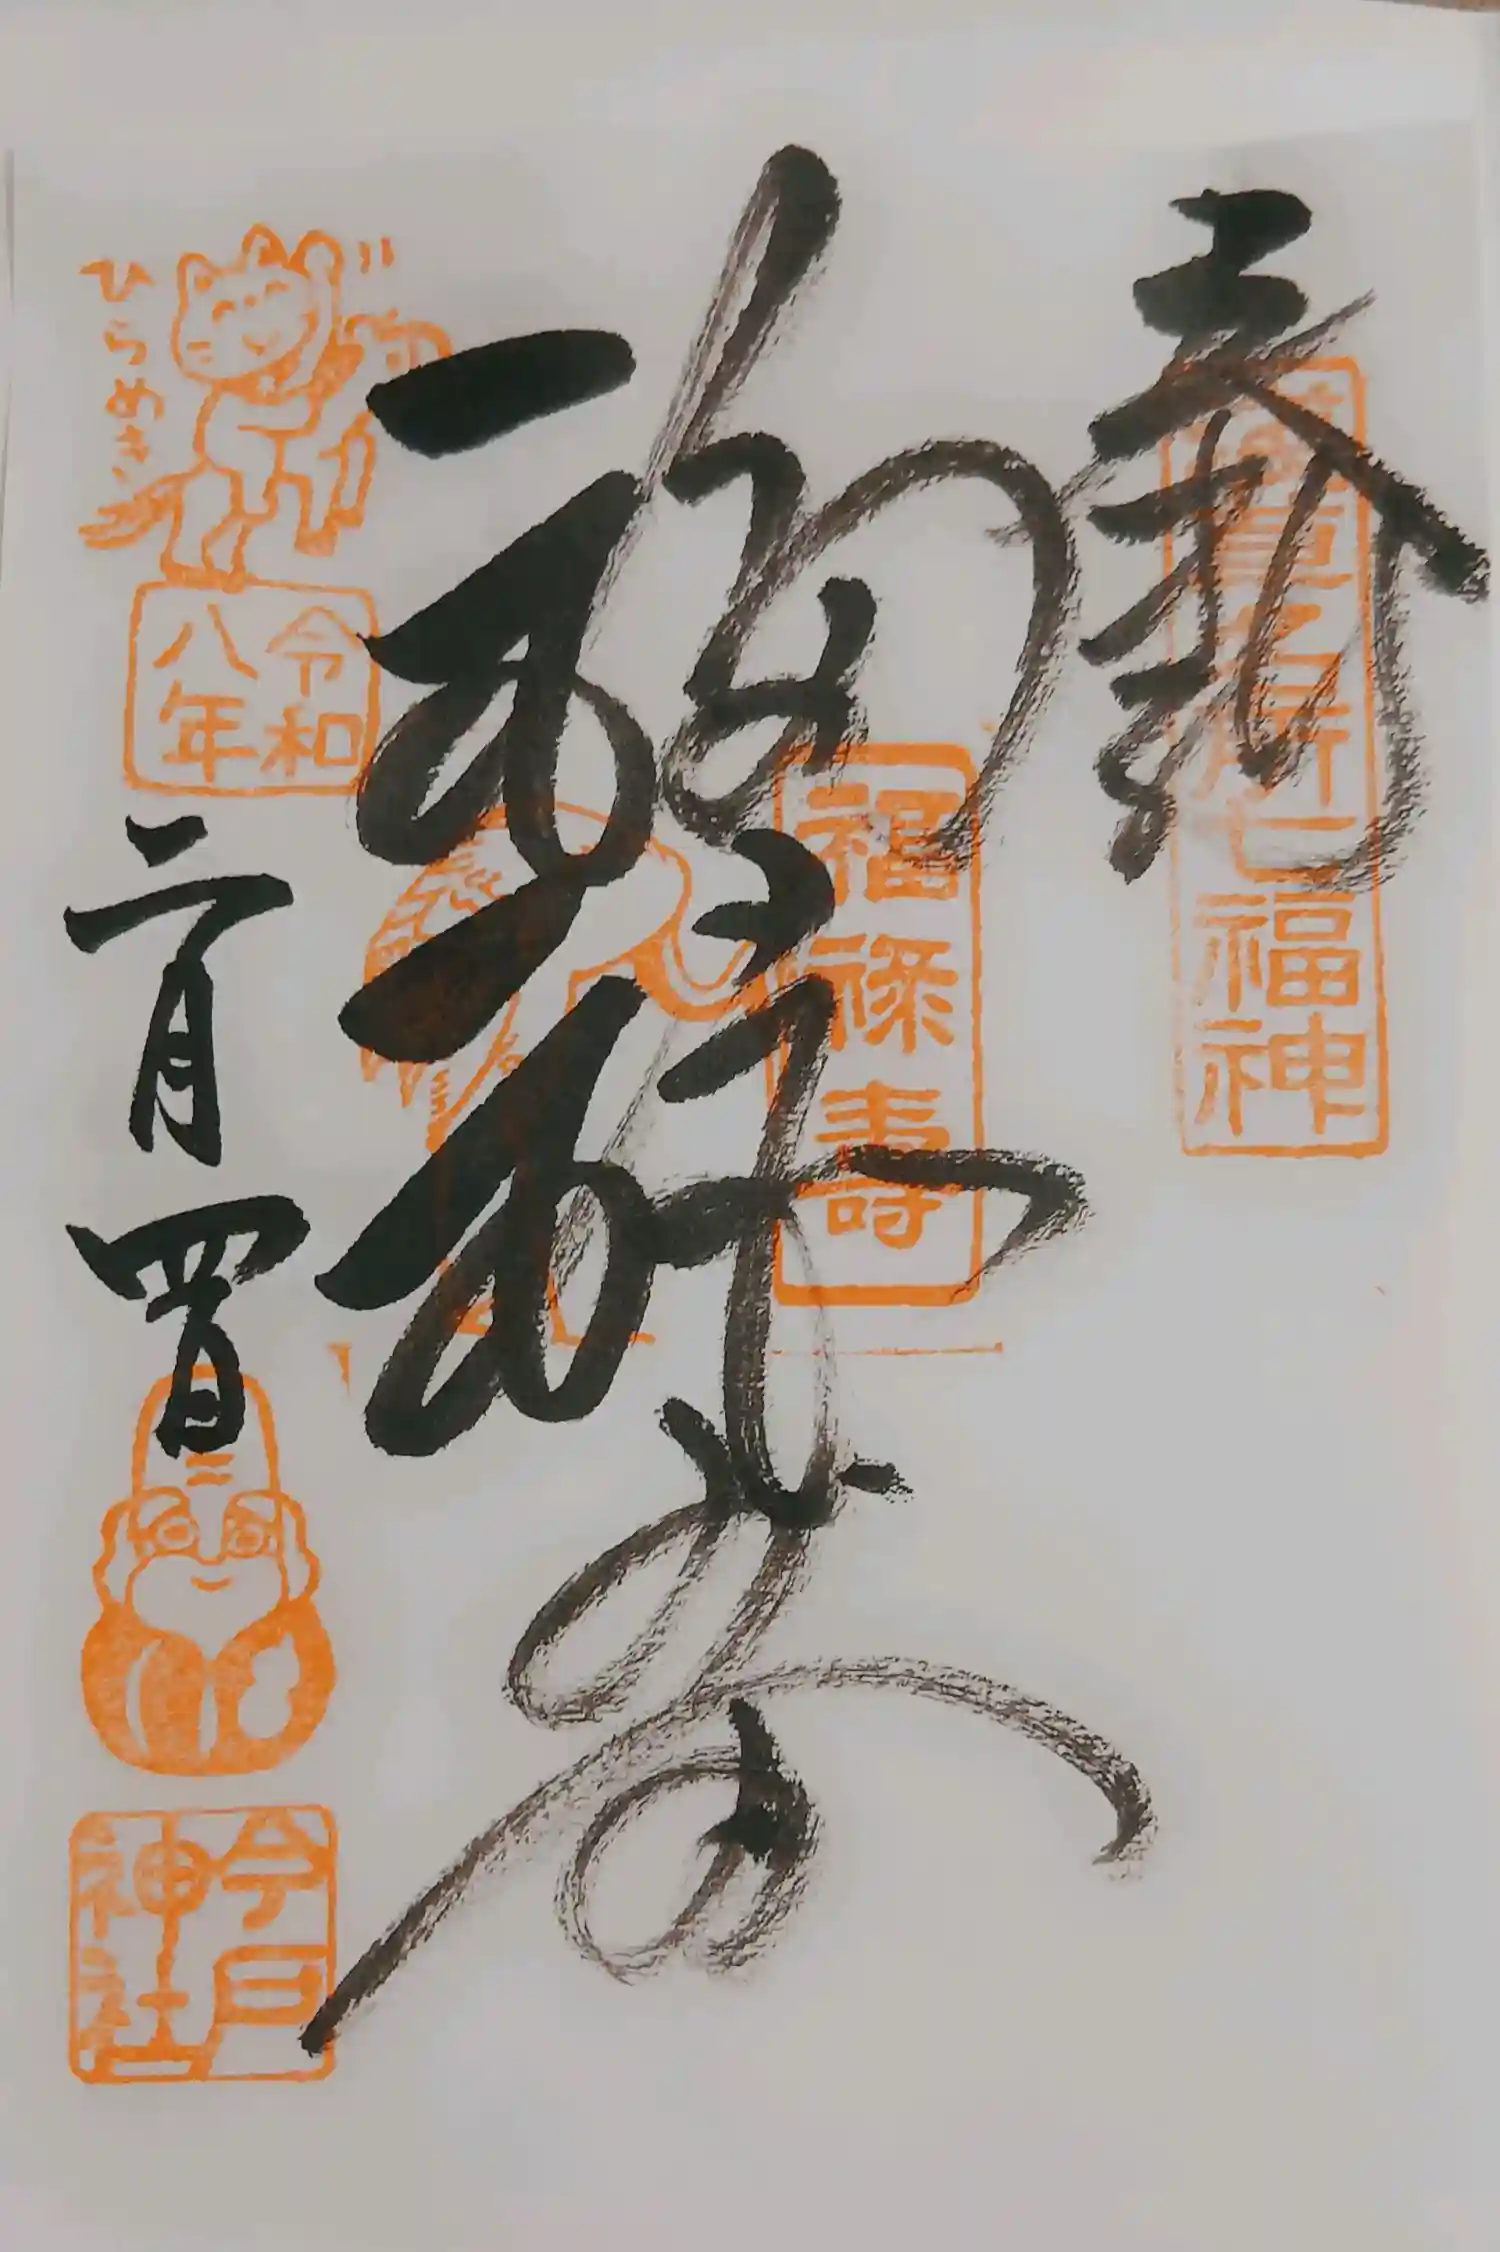 奉拝
浅草名所七福神
福禄寿
福禄寿
ひらめき
令和
八年
二月四日
今戸
神社